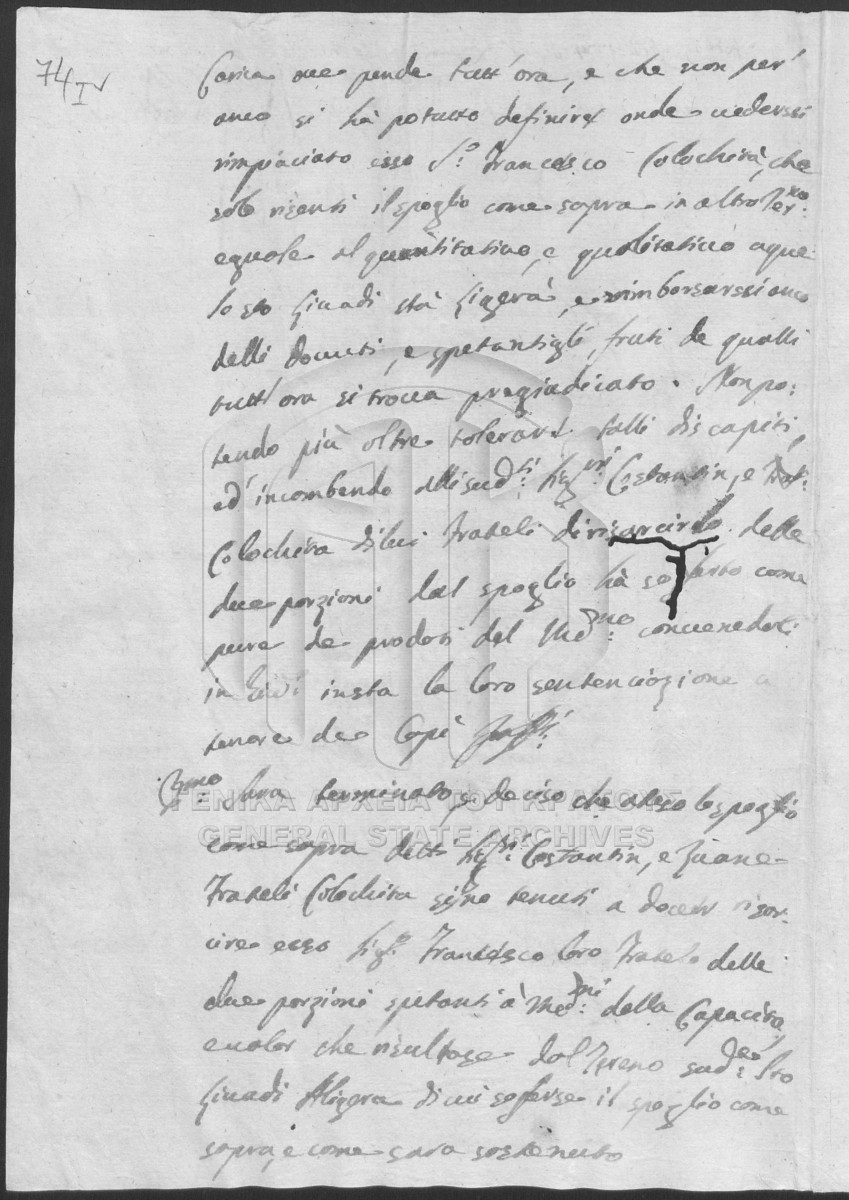 74 IV
Carica oue pende tutt'ora, e che non per
anco si hà potutto definire onde uedersi
rimpiaciato esso S.r Francesco Colochità, che
solo risentì il spoglio come sopra in altro Ter.no
eguale al quantitatiuo, e qualitatiuo a que
lo sto Liuadi stà, e rimborsarssi anco
delli douuti, e spetantigli, fruti de qualli
tutt'ora si troua pregiudicato. Non po:
tendo più oltre tolerare talli discapiti,
ed' incombendo alli sud.ti Sig.ri Costantin, e
Colochita di lui Frateli di risarcirlo delle
due porzioni dal spoglio hà soferto come
pure de prodoti del Med.mo
in insta la loro sentenciazione a
tenore de Capi
P.mo Sara terminato, e deciso che ateso lo spoglio
come sopra detti Sig.ri Costantin, e Zuane
Frateli Colochita sijno tenuti a douer risar:
cire esso Sig.r Francesco loro Fratelo delle
due porzioni spetanti à Med.mi della Capacita,
e ualor che risultase dal Tereno sud.to sto
Liuadi di cui soferse il spoglio come
sopra, e come sara sostenuto
ΓΕΝΙΚΑ ΑΡΧΕΙΑ ΤΟΥ ΚΡΑΤΟΥΣ
GENERAL STATE ARCHIVES